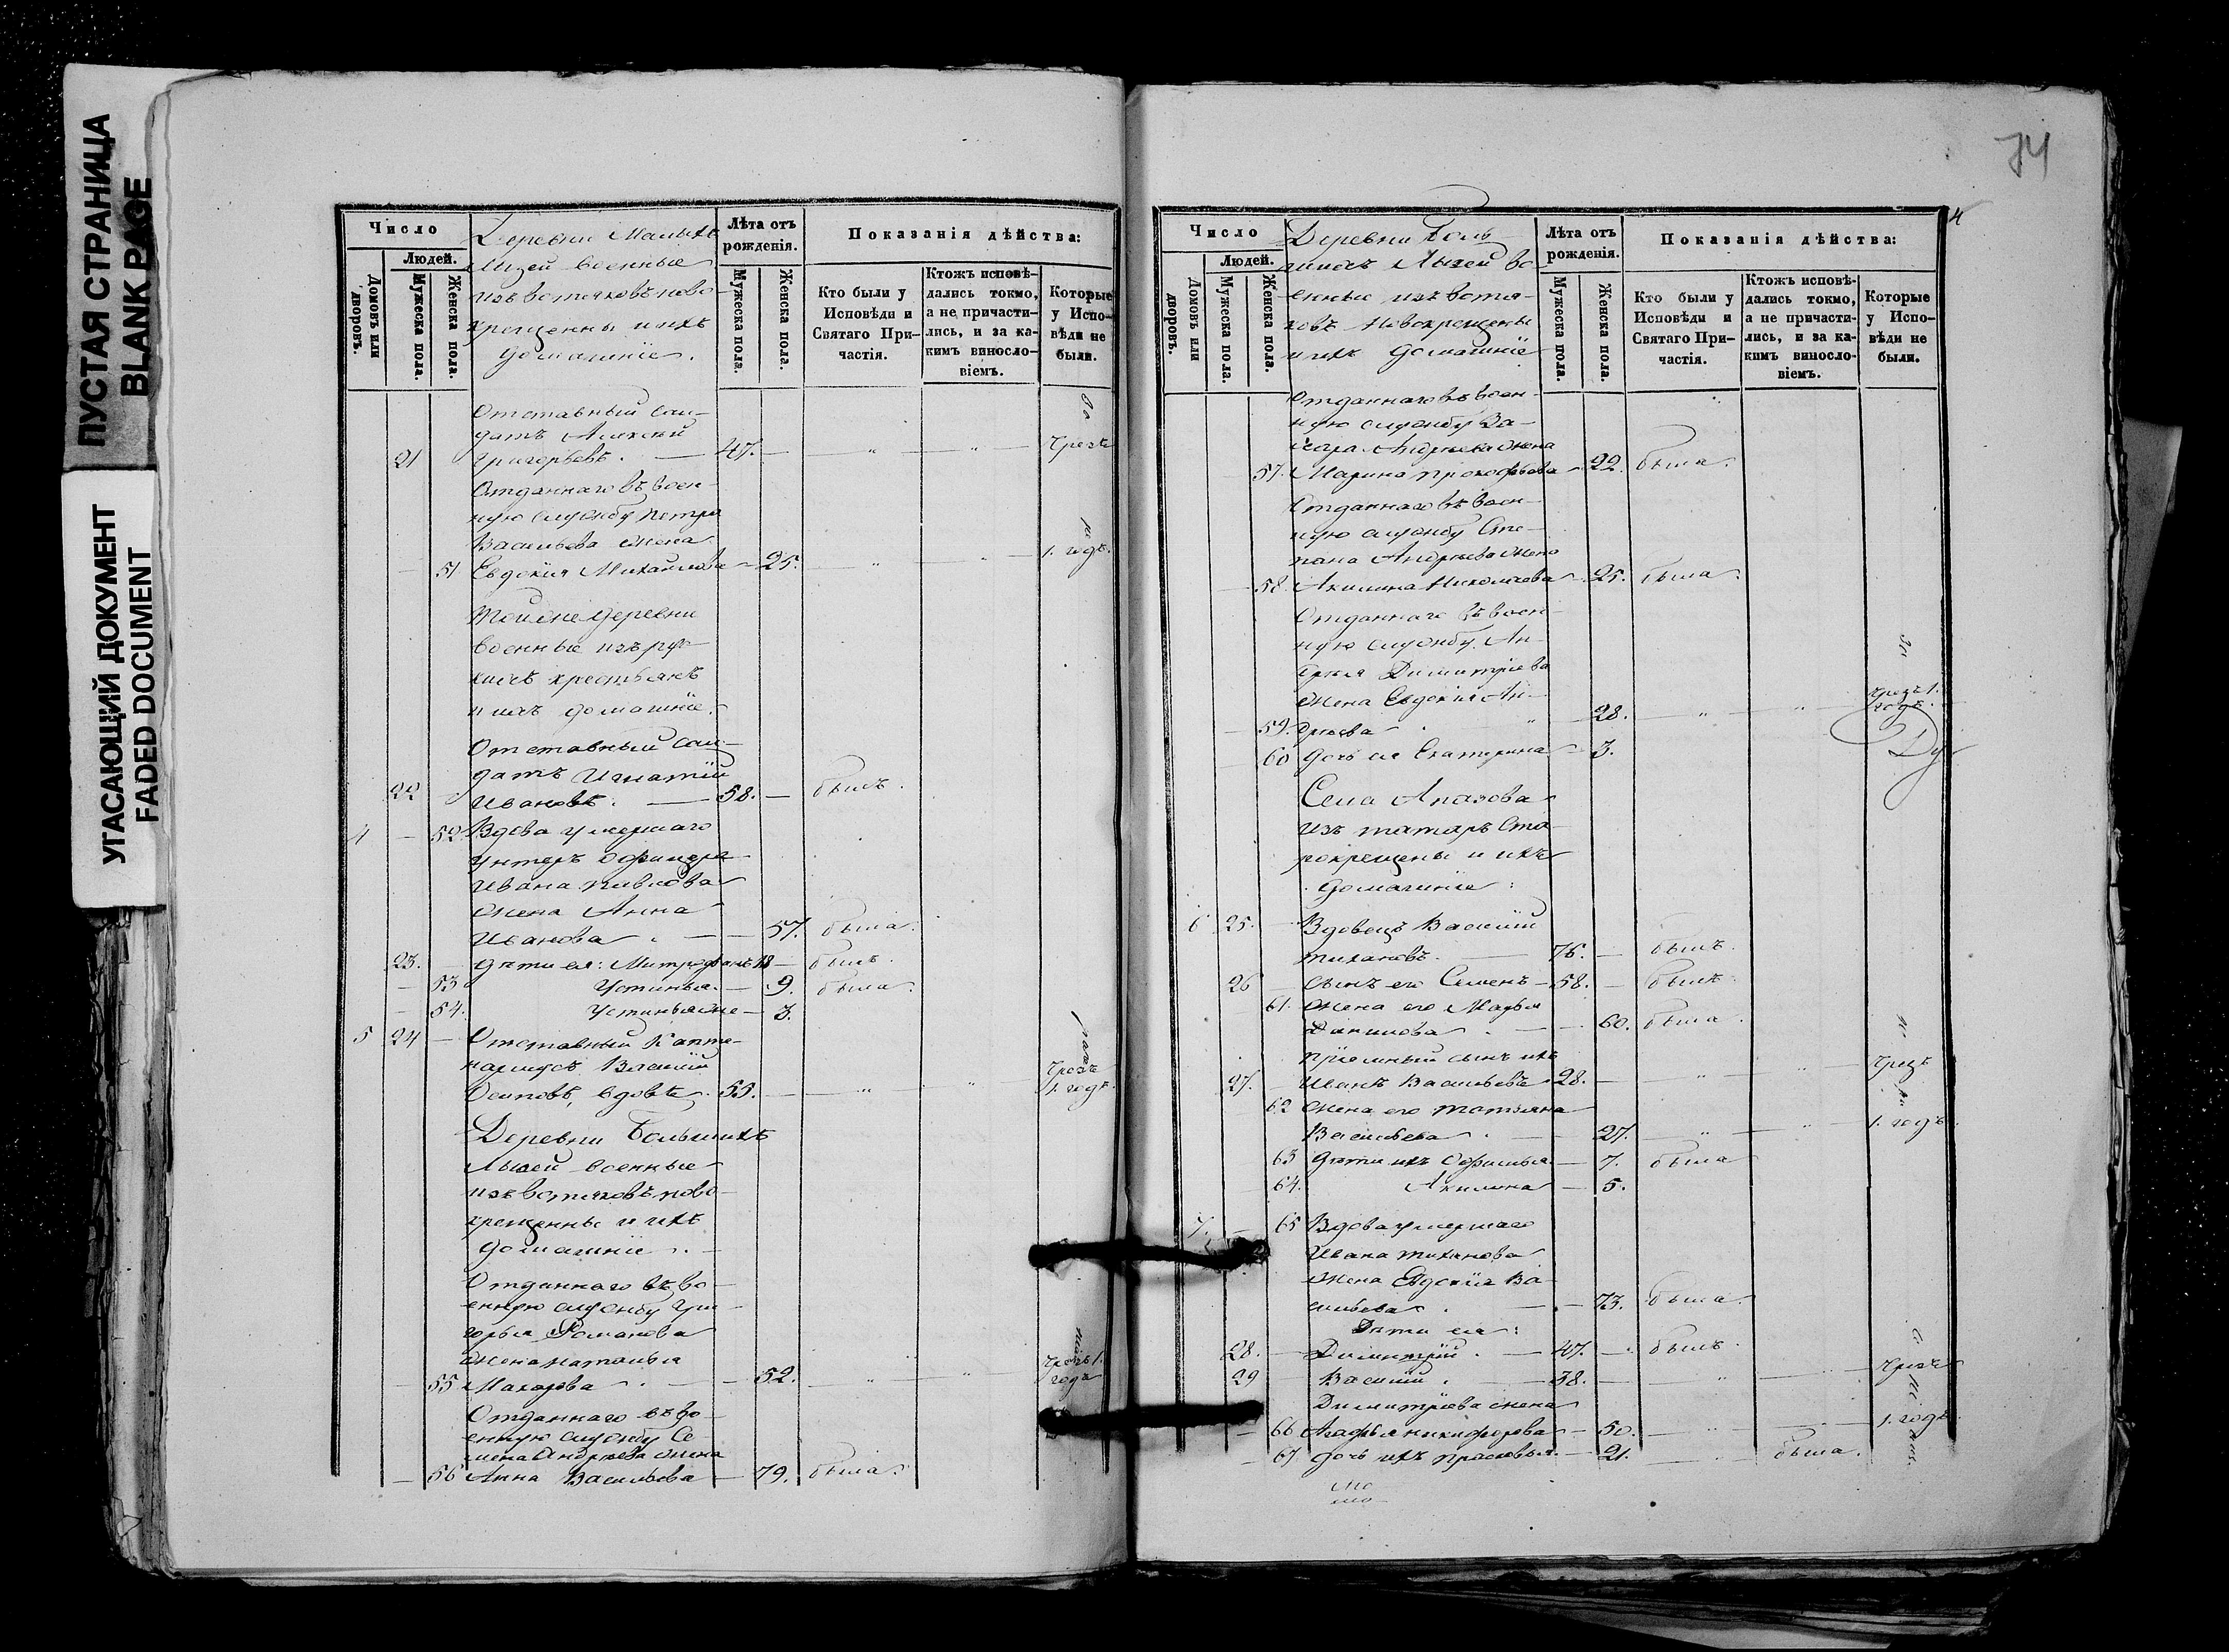 ПУСТАЯ СТРАНИЦА
BLANK PAGE
УГАСАЮЩИЙ ДОКУМЕНТ
FADED DOCUMENT
Число
Людей.
Домовъ или дворовъ.
Мужеска пола.
Женска пола.
Деревни Малыхъ
Лызей военные
изъ вотяковъ ново-
крещенны и ихъ
домашніе.
Лѣта отъ рожденія.
Мужеска пола.
Женска пола.
Показанія дѣйства:
Кто были у Исповѣди и Святаго Причастія.
Ктожъ исповѣдались токмо, а не причастились, и за какимъ винословіемъ.
Которые у Исповѣди не были.
Отставный сол-
датъ Алексѣй
21 Григорьевъ. 47. " " Чрезъ
Отданнаго въ воен-
ную службу Петра
Васильева жена
51 Евдокия Михайлова 25. " " 1. годъ.
Той же деревни
военные изъ рус-
кихъ крестьянъ
и ихъ домашніе.
Отставный сол-
датъ Игнатій
22 Ивановъ. 58. былъ.
4 52 Вдова умершаго
унтеръ офицера
Ивана Павлова
жена Анна
Иванова 57. была.
23. дѣти ея: Митрофанъ 18 былъ.
53 Устинья. 9. была.
54. Устинья же 3.
5 24 Отставный Капте-
нармусъ Василій
Осиповъ, вдовъ. 55. " " Чрезъ 1. годъ.
Деревни Большихъ
Лызей военные
изъ вотяковъ ново-
крещенны и ихъ
домашніе.
Отданнаго въ во-
енную службу Гри-
горья Романова
жена Наталья
55 Макарова 52. " " Чрезъ 1. года
Отданнаго въ во-
енную службу Се-
мена Андреева жена
56 Анна Васильева 79. была.
74
4
Число
Людей.
Домовъ или дворовъ.
Мужеска пола.
Женска пола.
Деревни Боль-
шихъ Лызей во-
енные изъ вотя-
ковъ Новокрещены
и ихъ домашніе
Лѣта отъ рожденія.
Мужеска пола.
Женска пола.
Показанія дѣйства:
Кто были у Исповѣди и Святаго Причастія.
Ктожъ исповѣдались токмо, а не причастились, и за какимъ винословіемъ.
Которые у Исповѣди не были.
Отданнаго въ воен-
ную службу За-
хара Андреева жена
57. Марина Прокофьева 22. была.
Отданнаго въ воен-
ную службу Сте-
пана Андреева жена
58. Акилина Николаева 25. была.
Отданнаго въ воен-
ную службу Ан-
дрея Димитріева
жена Евдокия Ан-
59. дреева 28. " " чрезъ 1. годъ.
60 дочь ея Екатерина 3.
Села Апазова
изъ татаръ Ста-
рокрещены и ихъ
домашніе:
6 25. Вдовецъ Василій
Тихановъ. 76. былъ.
26 сынъ его Семенъ 58. былъ.
61. жена его Марья
Данилова 60. была.
Пріемный сынъ ихъ
27. Иванъ Васильевъ 28. " " Чрезъ
62 жена его Татьяна
Васильева 27. " " 1. годъ
63 дѣти ихъ Офимья 7. была
64. Акилина 5.
7. 65 Вдова умершаго
Ивана Тиханова
жена Евдокія Ва-
сильева 73. была.
Дѣти ея:
28. Димитрій. 47. былъ.
29 Василій. 38. " Чрезъ
Димитріева жена
66 Агафья Никифорова 50. " 1. годъ.
67 дочь ихъ Прасковья. 21. была.